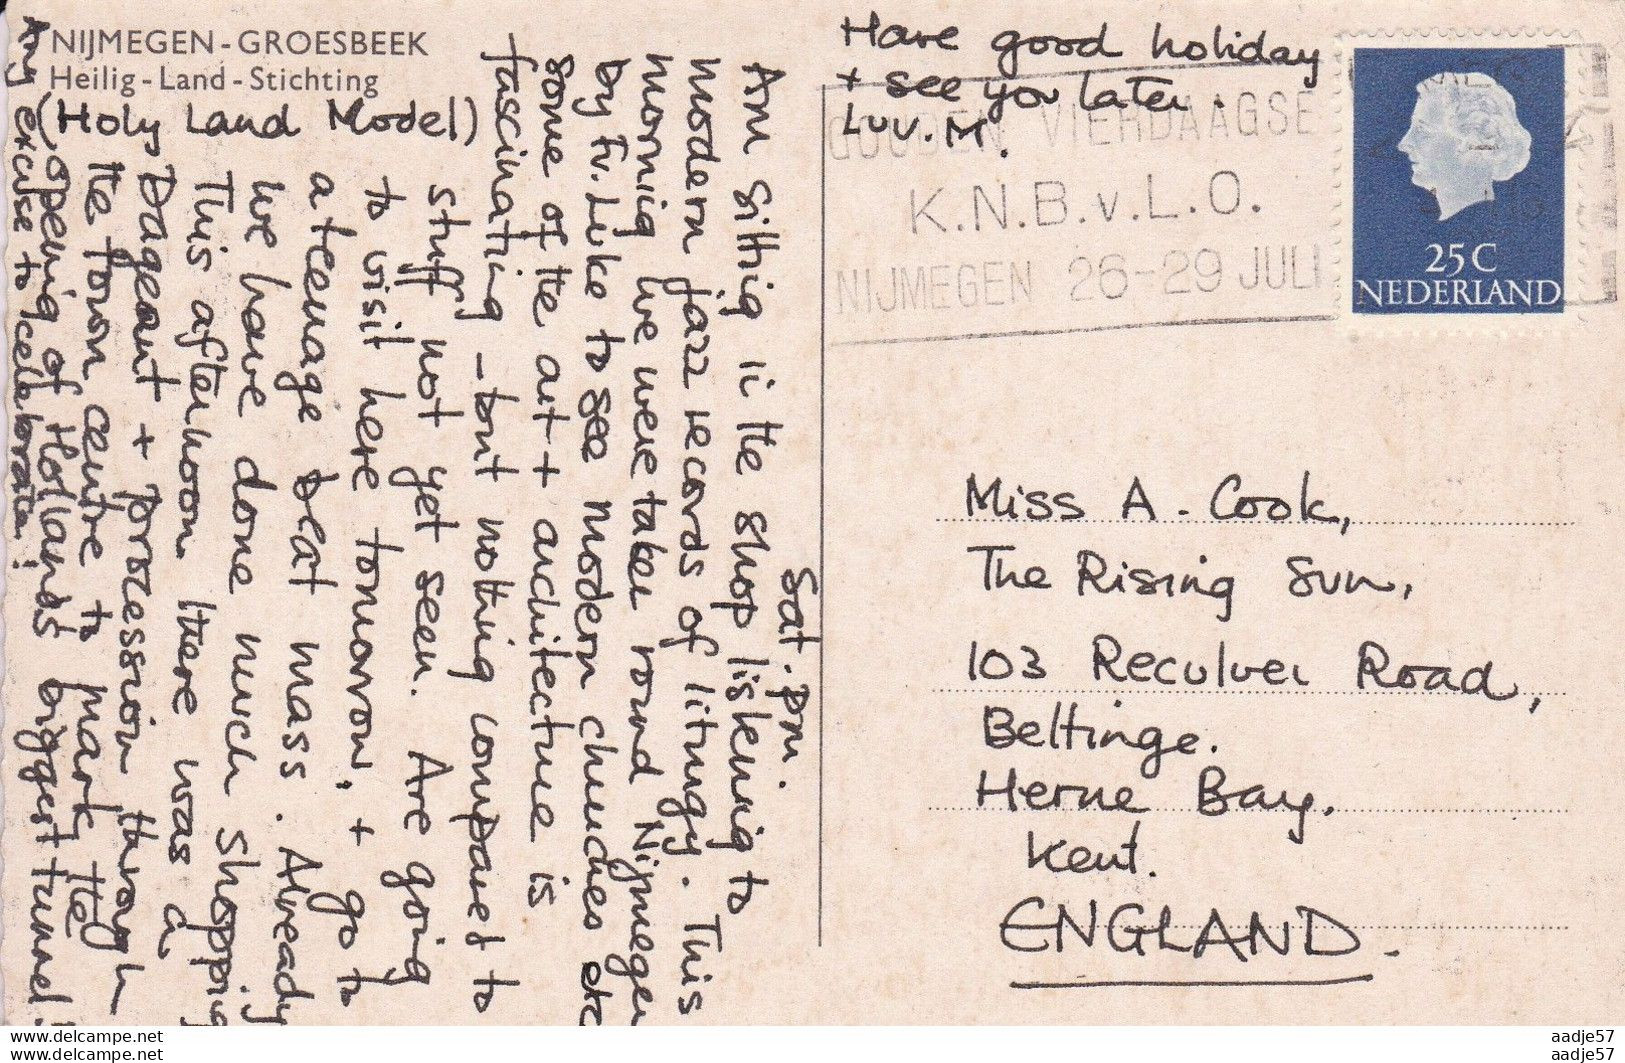 NIJMEGEN - GROESBEEK
Heilig - Land - Stichting
(Holy Land Model)
Sat. pm.
Am sittig in the shop liskenig to
modern jazz records of liturgy. This
mornig we were taken round Nijmegen
by Fr. Luke to see modern churches etc
some of the art + architecture is
fascinating - but nothing compared to
stuff not yet seen. Are going
to visit here tomorrow, + go to
a teenage beat mass. Already
we have done much shopping
This afternoon there was a
Pageant + procession through
the town centre to mark the
opening of Holland's biggest tunnel!
Any excuse to celebrate!
Have good holiday
+ see you later.
Luv. M.
GOUDEN VIERDAAGSE
K.N.B.v.L.O.
NIJMEGEN 26-29 JULI
25 C
NEDERLAND
Miss A. Cook,
The Rising Sun,
103 Reculver Road,
Beltinge.
Herne Bay,
Kent.
ENGLAND.
Hosted by delcampe.net
Hosted by delcampe.net
aadje57
aadje57